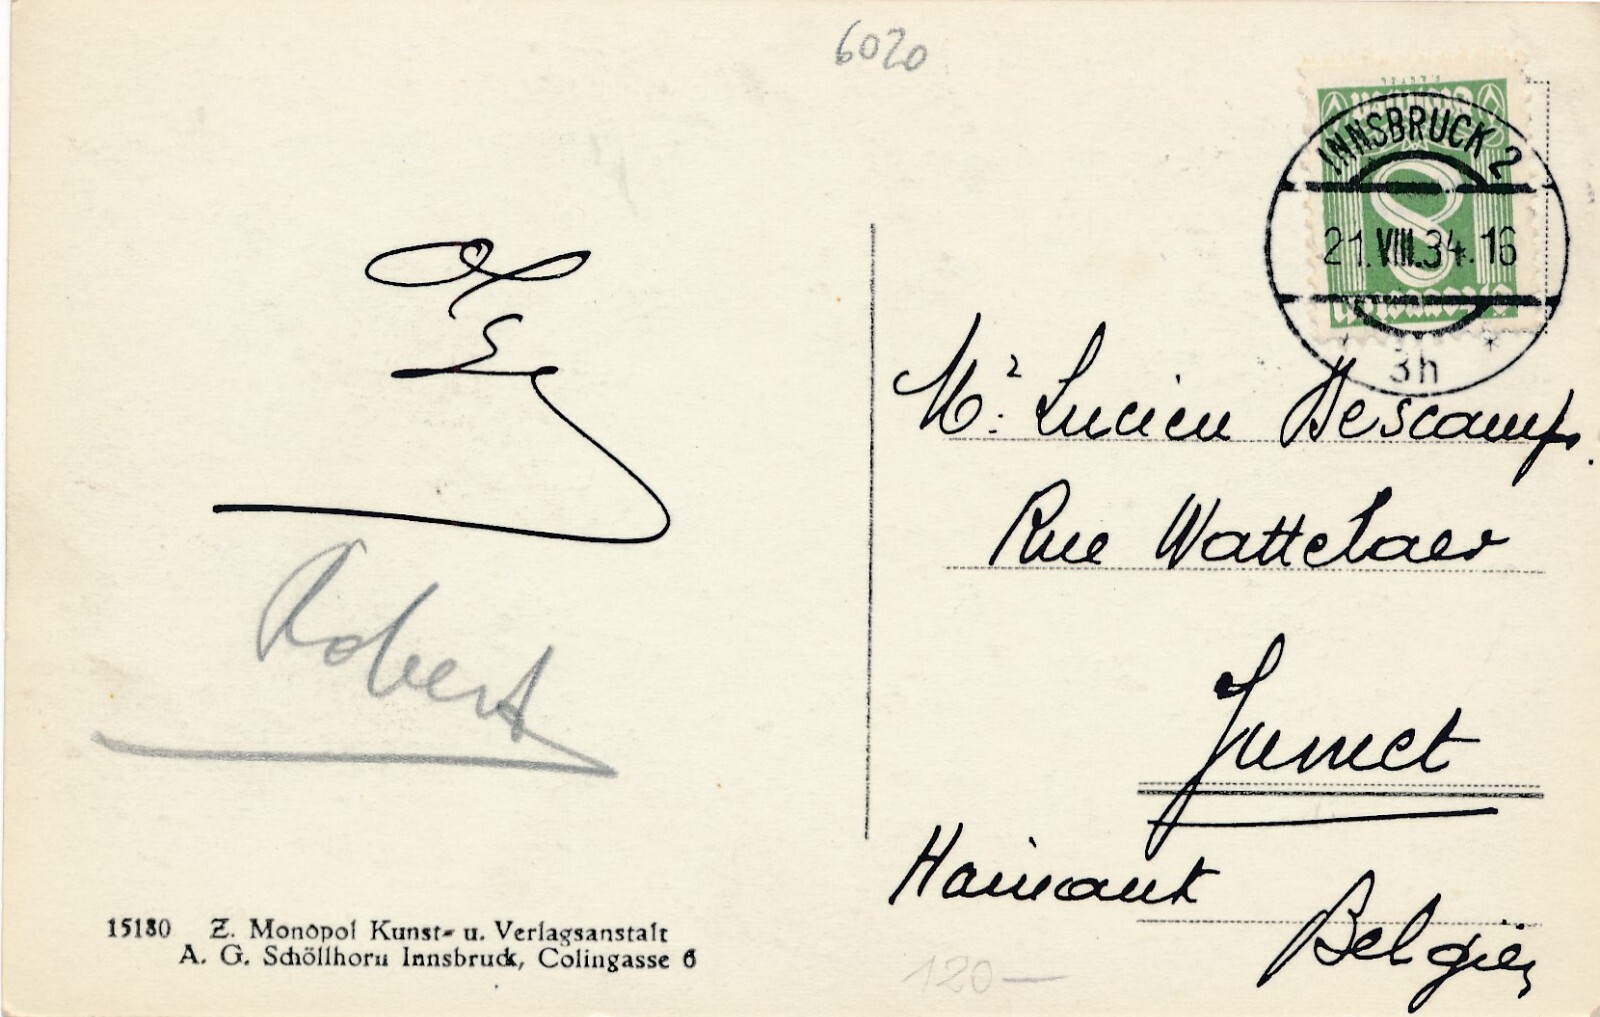 6020
INNSBRUCK 2
21.VIII.34.16
8
3h
*
Mr. Lucien Descamps.
Rue Wattelaer
Jumet
Hainaut
Belgien
Robert
15180 Z. Monopol Kunst- u. Verlagsanstalt
A. G. Schöllhorn Innsbruck, Colingasse 6
120—